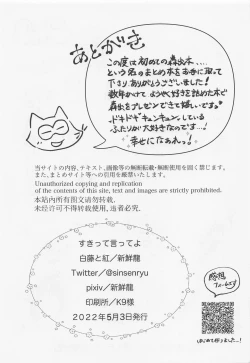 あとがき
この度は初めての森出木、、、
という名のまとめ本をお手に取って
下さりありがとうございました!
数年かけてようやく好きを詰めた本で
森出をプレゼンできて嬉しいです。
ドキドキキュンキュンしている
ふたりが大好きなのです…!
幸せになぁれっ!
当サイトの内容、テキスト、画像等の無断転載・無断使用を固く禁じます。
また、まとめサイト等への引用を厳禁いたします。
Unauthorized copying and replication
of the contents of this site, text and images are strictly prohibited.
本站内所有图文请勿转载.
未经许可不得转载使用,违者必究.
すきって言ってよ
白藤と紅/新鮮龍
Twitter/@sinsenryu
pixiv/新鮮龍
印刷所/K9様
2022年5月3日発行
感想
フォームです
はじめて作りました…!